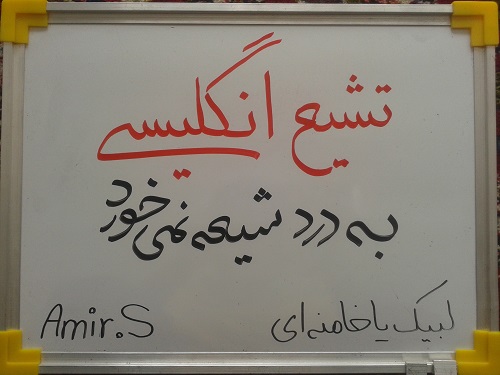 تشیع انگلیسی
به درد شیعه نمی خورد
لبیک یا خامنه ای
Amir.S